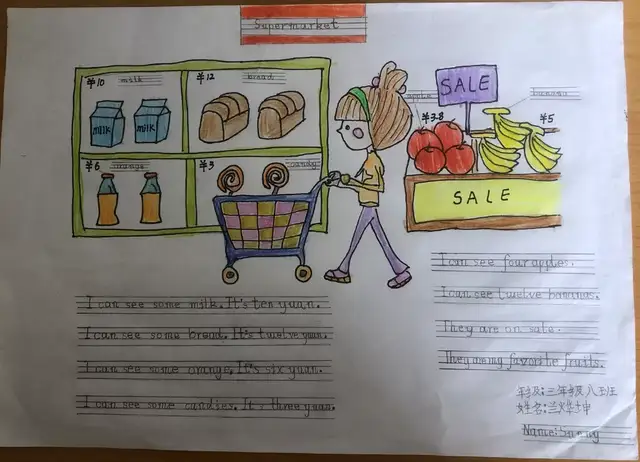 Supermarket
¥10 milk
¥12 bread
milk milk
¥6 orange
¥3 candy
SALE
apple
banana
¥3.8
¥5
SALE
I can see four apples.
I can see twelve bananas.
They are on sale.
They are my favorite fruits.
I can see some milk. It's ten yuan.
I can see some bread. It's twelve yuan.
I can see some orange. It's six yuan.
I can see some candies. It's three yuan.
年级:三年级八班
姓名:兰烨坤
Name: Sunny